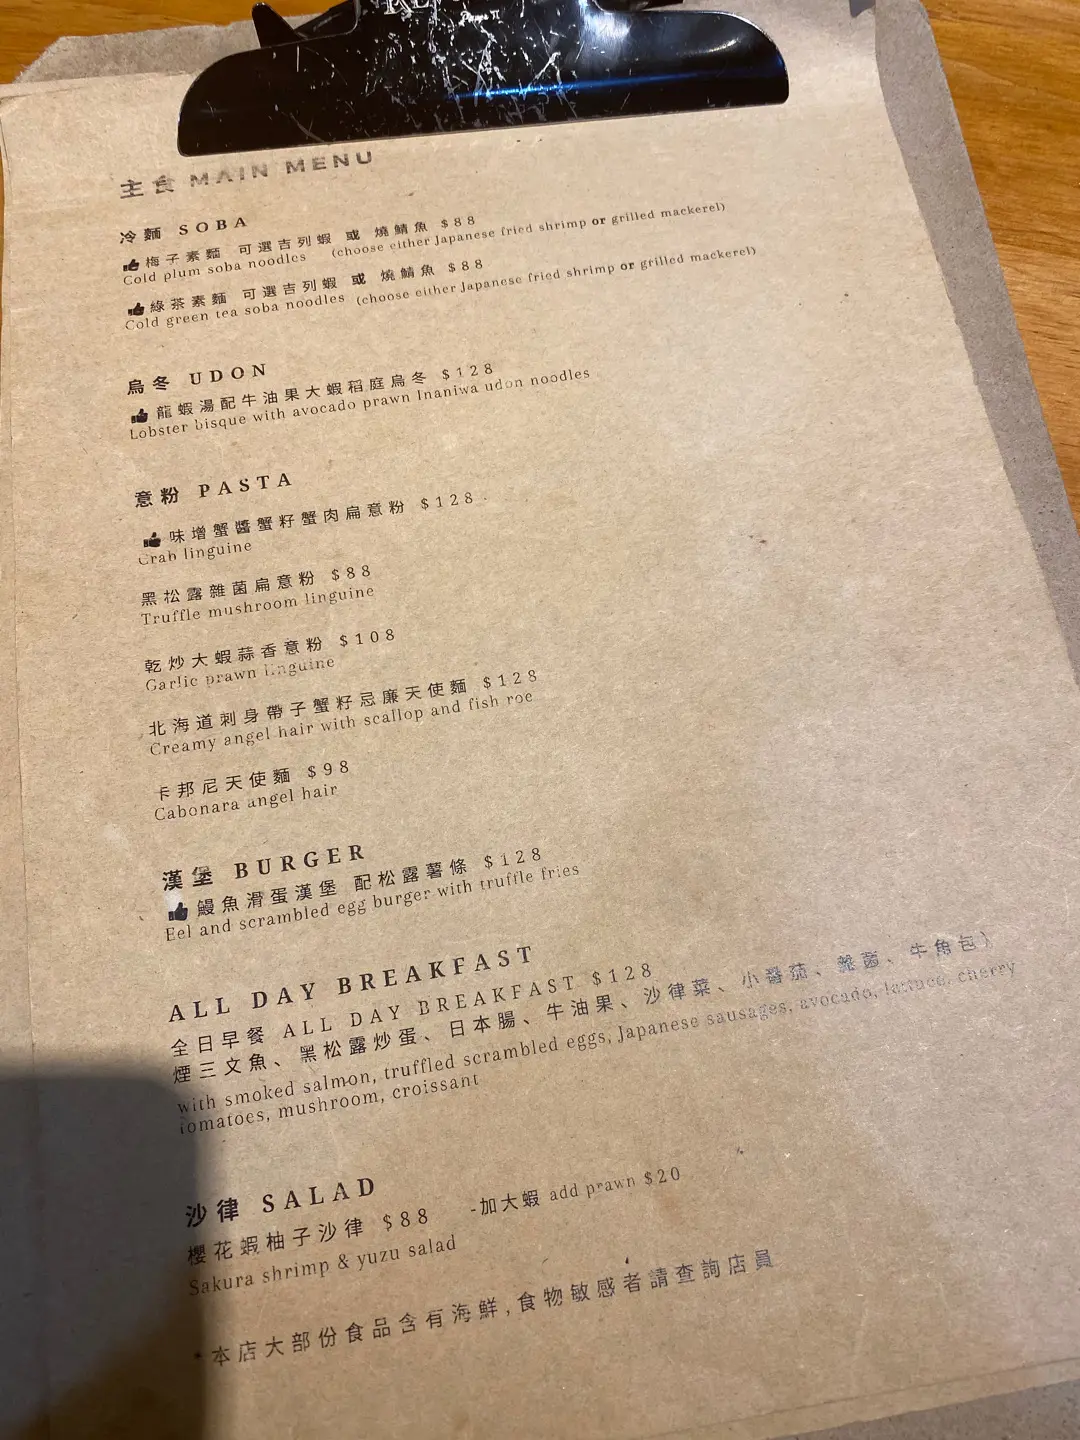 主食 MAIN MENU
冷麵 SOBA
梅子素麵 可選吉列蝦 或 燒鯖魚 $88
Cold plum soba noodles (choose either Japanese fried shrimp or grilled mackerel)
綠茶素麵 可選吉列蝦 或 燒鯖魚 $88
Cold green tea soba noodles (choose either Japanese fried shrimp or grilled mackerel)
烏冬 UDON
龍蝦湯配牛油果大蝦稻庭烏冬 $128
Lobster bisque with avocado prawn Inaniwa udon noodles
意粉 PASTA
味增蟹醬蟹籽蟹肉扁意粉 $128
Crab linguine
黑松露雜菌扁意粉 $88
Truffle mushroom linguine
乾炒大蝦蒜香意粉 $108
Garlic prawn linguine
北海道刺身帶子蟹籽忌廉天使麵 $128
Creamy angel hair with scallop and fish roe
卡邦尼天使麵 $98
Cabonara angel hair
漢堡 BURGER
鰻魚滑蛋漢堡 配松露薯條 $128
Eel and scrambled egg burger with truffle fries
ALL DAY BREAKFAST
全日早餐 ALL DAY BREAKFAST $128
煙三文魚、黑松露炒蛋、日本腸、牛油果、沙律菜、小番茄、雜菌、牛角包)
with smoked salmon, truffled scrambled eggs, Japanese sausages, avocado, lattuce, cherry
tomatoes, mushroom, croissant
沙律 SALAD
櫻花蝦柚子沙律 $88 -加大蝦 add prawn $20
Sakura shrimp & yuzu salad
*本店大部份食品含有海鮮,食物敏感者請查詢店員